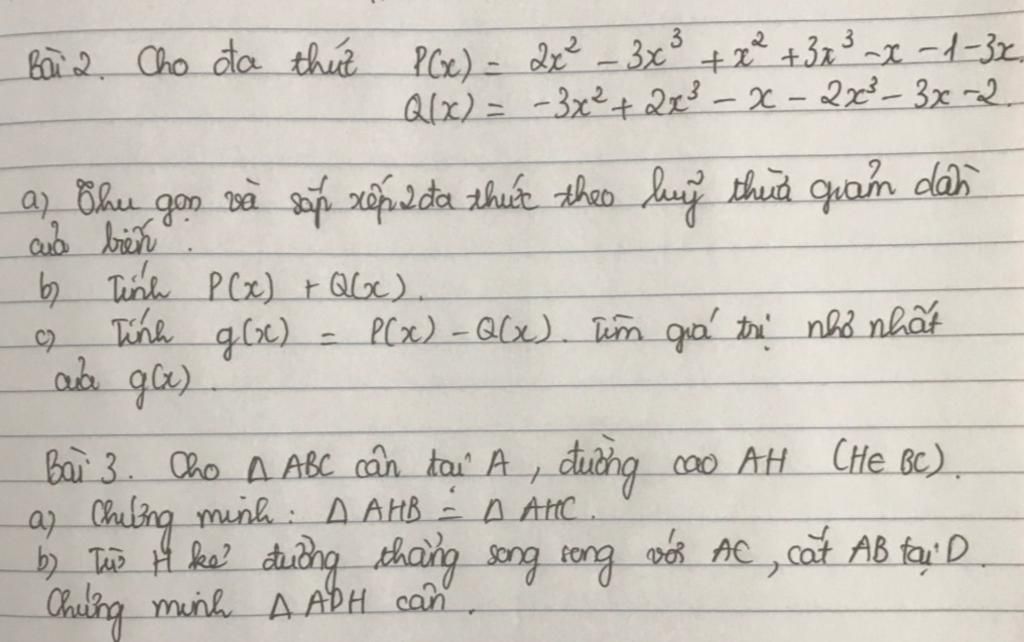 Bài 2. Cho đa thức P(x) = 2x² - 3x³ + x² + 3x³ - x - 1 - 3x.
Q(x) = -3x² + 2x³ - x - 2x³ - 3x - 2.
a) Thu gọn và sắp xếp 2 đa thức theo luỹ thừa giảm dần
của biến.
b) Tính P(x) + Q(x).
c) Tính g(x) = P(x) - Q(x). Tìm giá trị nhỏ nhất
của g(x).
Bài 3. Cho Δ ABC cân tại A, đường cao AH (H∈BC).
a) Chứng minh: Δ AHB = Δ AHC.
b) Từ H kẻ đường thẳng song song với AC, cắt AB tại D.
Chứng minh Δ ADH cân.